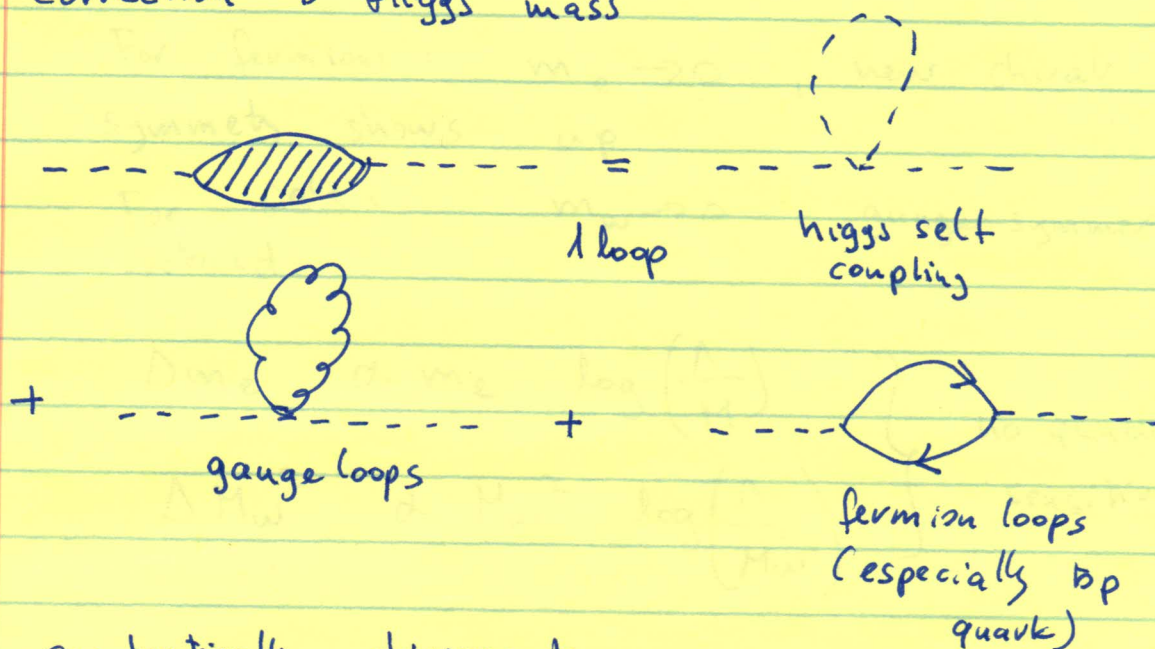 higgs mass
=
1 loop
higgs self
coupling
+
gauge loops
+
fermion loops
(especially top
quark)